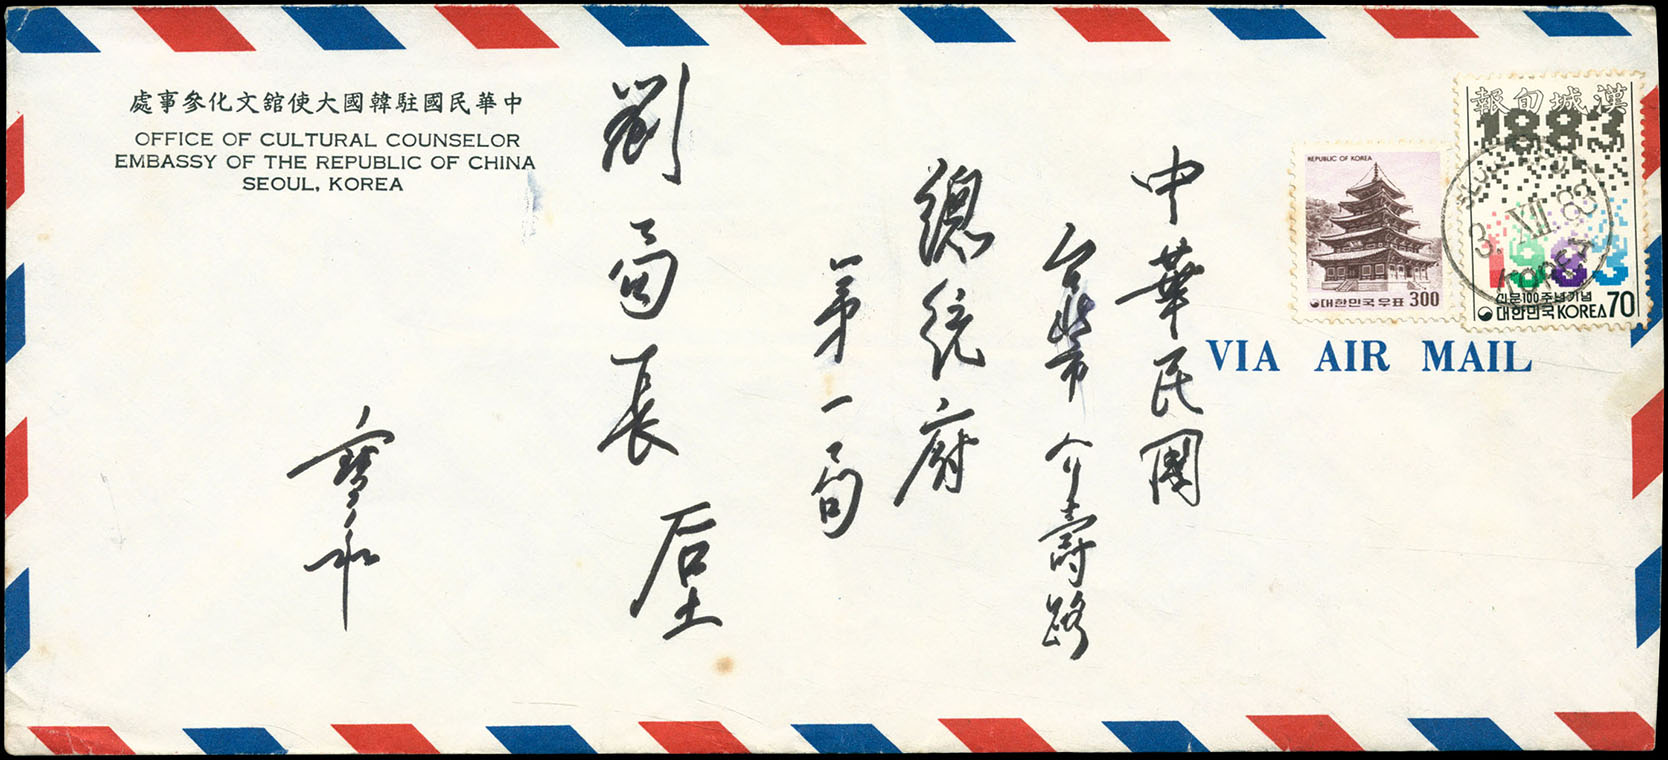 處事參化文館使大國韓駐國民華中
OFFICE OF CULTURAL COUNSELOR
EMBASSY OF THE REPUBLIC OF CHINA
SEOUL, KOREA
REPUBLIC OF KOREA
대한민국우표 300
報旬城漢
1883
1983
신문100주년기념
대한민국 KOREA 70
3. XII. 83
KOREA
VIA AIR MAIL
中華民國
台北市介壽路
總統府
第一局
劉局長